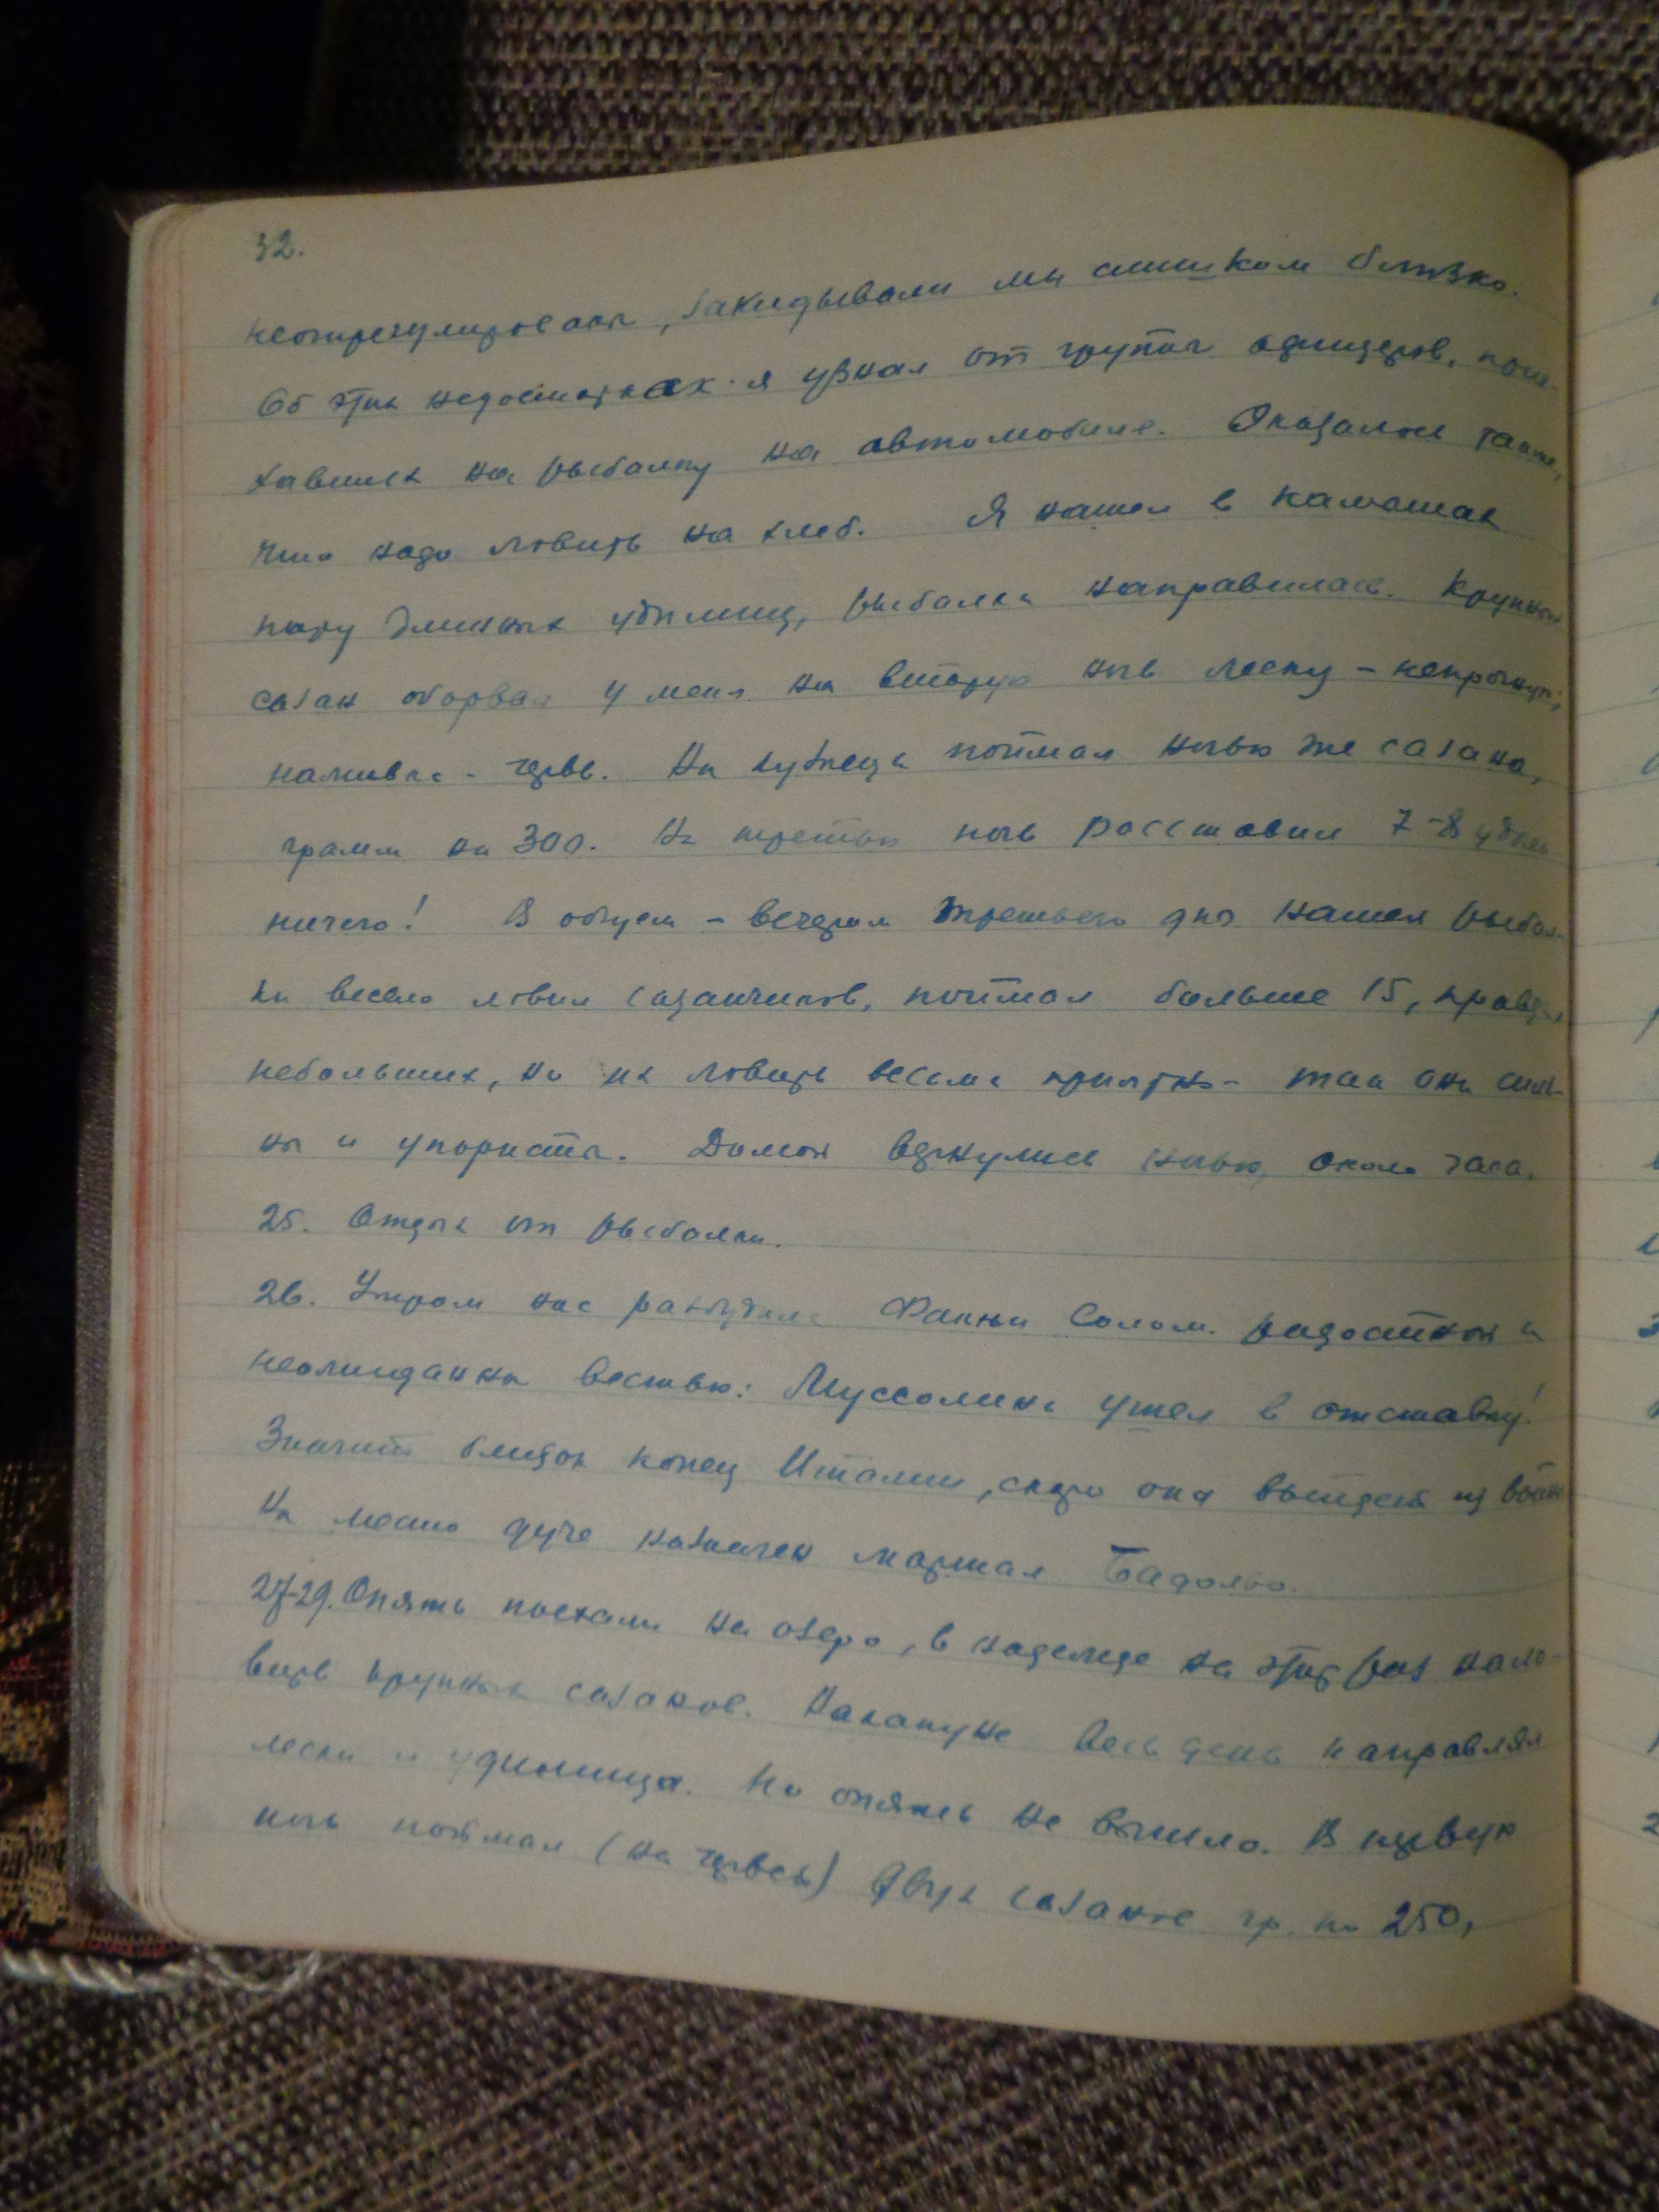 32.
неотрегулированы, закидывали мы слишком близко.
Об этих недостатках я узнал от группы офицеров, прие-
хавших на рыбалку на автомобиле. Оказалось также,
что надо ловить на хлеб. Я нашел в камышах
пару длинных удилищ, рыбалка направилась. Крупный
сазан оборвал у меня на вторую ночь леску –
наживка - червь. На кузнеца поймал ночью же сазана,
грамм на 300. На третью ночь расставил 7-8 удочек
ничего! В общем – вечером третьего дня нашей рыбал-
ки весело ловил сазанчиков, поймал больше 15, правда,
небольших, но их ловить весьма приятно – так они силь-
ны и упористы. Домой вернулись ночью, около часа.
25. Отдых от рыбалки.
26. Утром нас разбудила Фанни Солом. радостной и
неожиданной вестью: Муссолини ушел в отставку!
Значит близок конец Италии, скоро она выйдет из войны
На место дуче назначен маршал Бадольо.
27-29. Опять поехали на озеро, в надежде на этот раз нало-
вить крупных сазанов. Накануне весь день направлял
лески и удилища. Но опять не вышло. В первую
ночь поймал (на червей) двух сазанов гр. по 250,